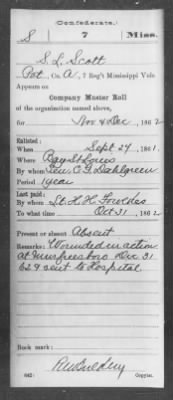 Confederate.
S 7 Miss.
S. L. Scott
Pvt, Co. A, 7 Reg't Mississippi Vols
Appears on
Company Muster Roll
of the organization named above,
for Nov & Dec, 1862
Enlisted:
When Sept 29, 1861.
Where Bay St Louis
By whom Gen. C. G. Dahlgreen
Period 1 year
Last paid:
By whom Lt. H. H.
To what time Oct 31, 1862
Present or absent Absent
Remarks: Wounded in action
at Murfreesboro Dec 31
62 & sent to Hospital.
Book mark:
(642)
Copyist.